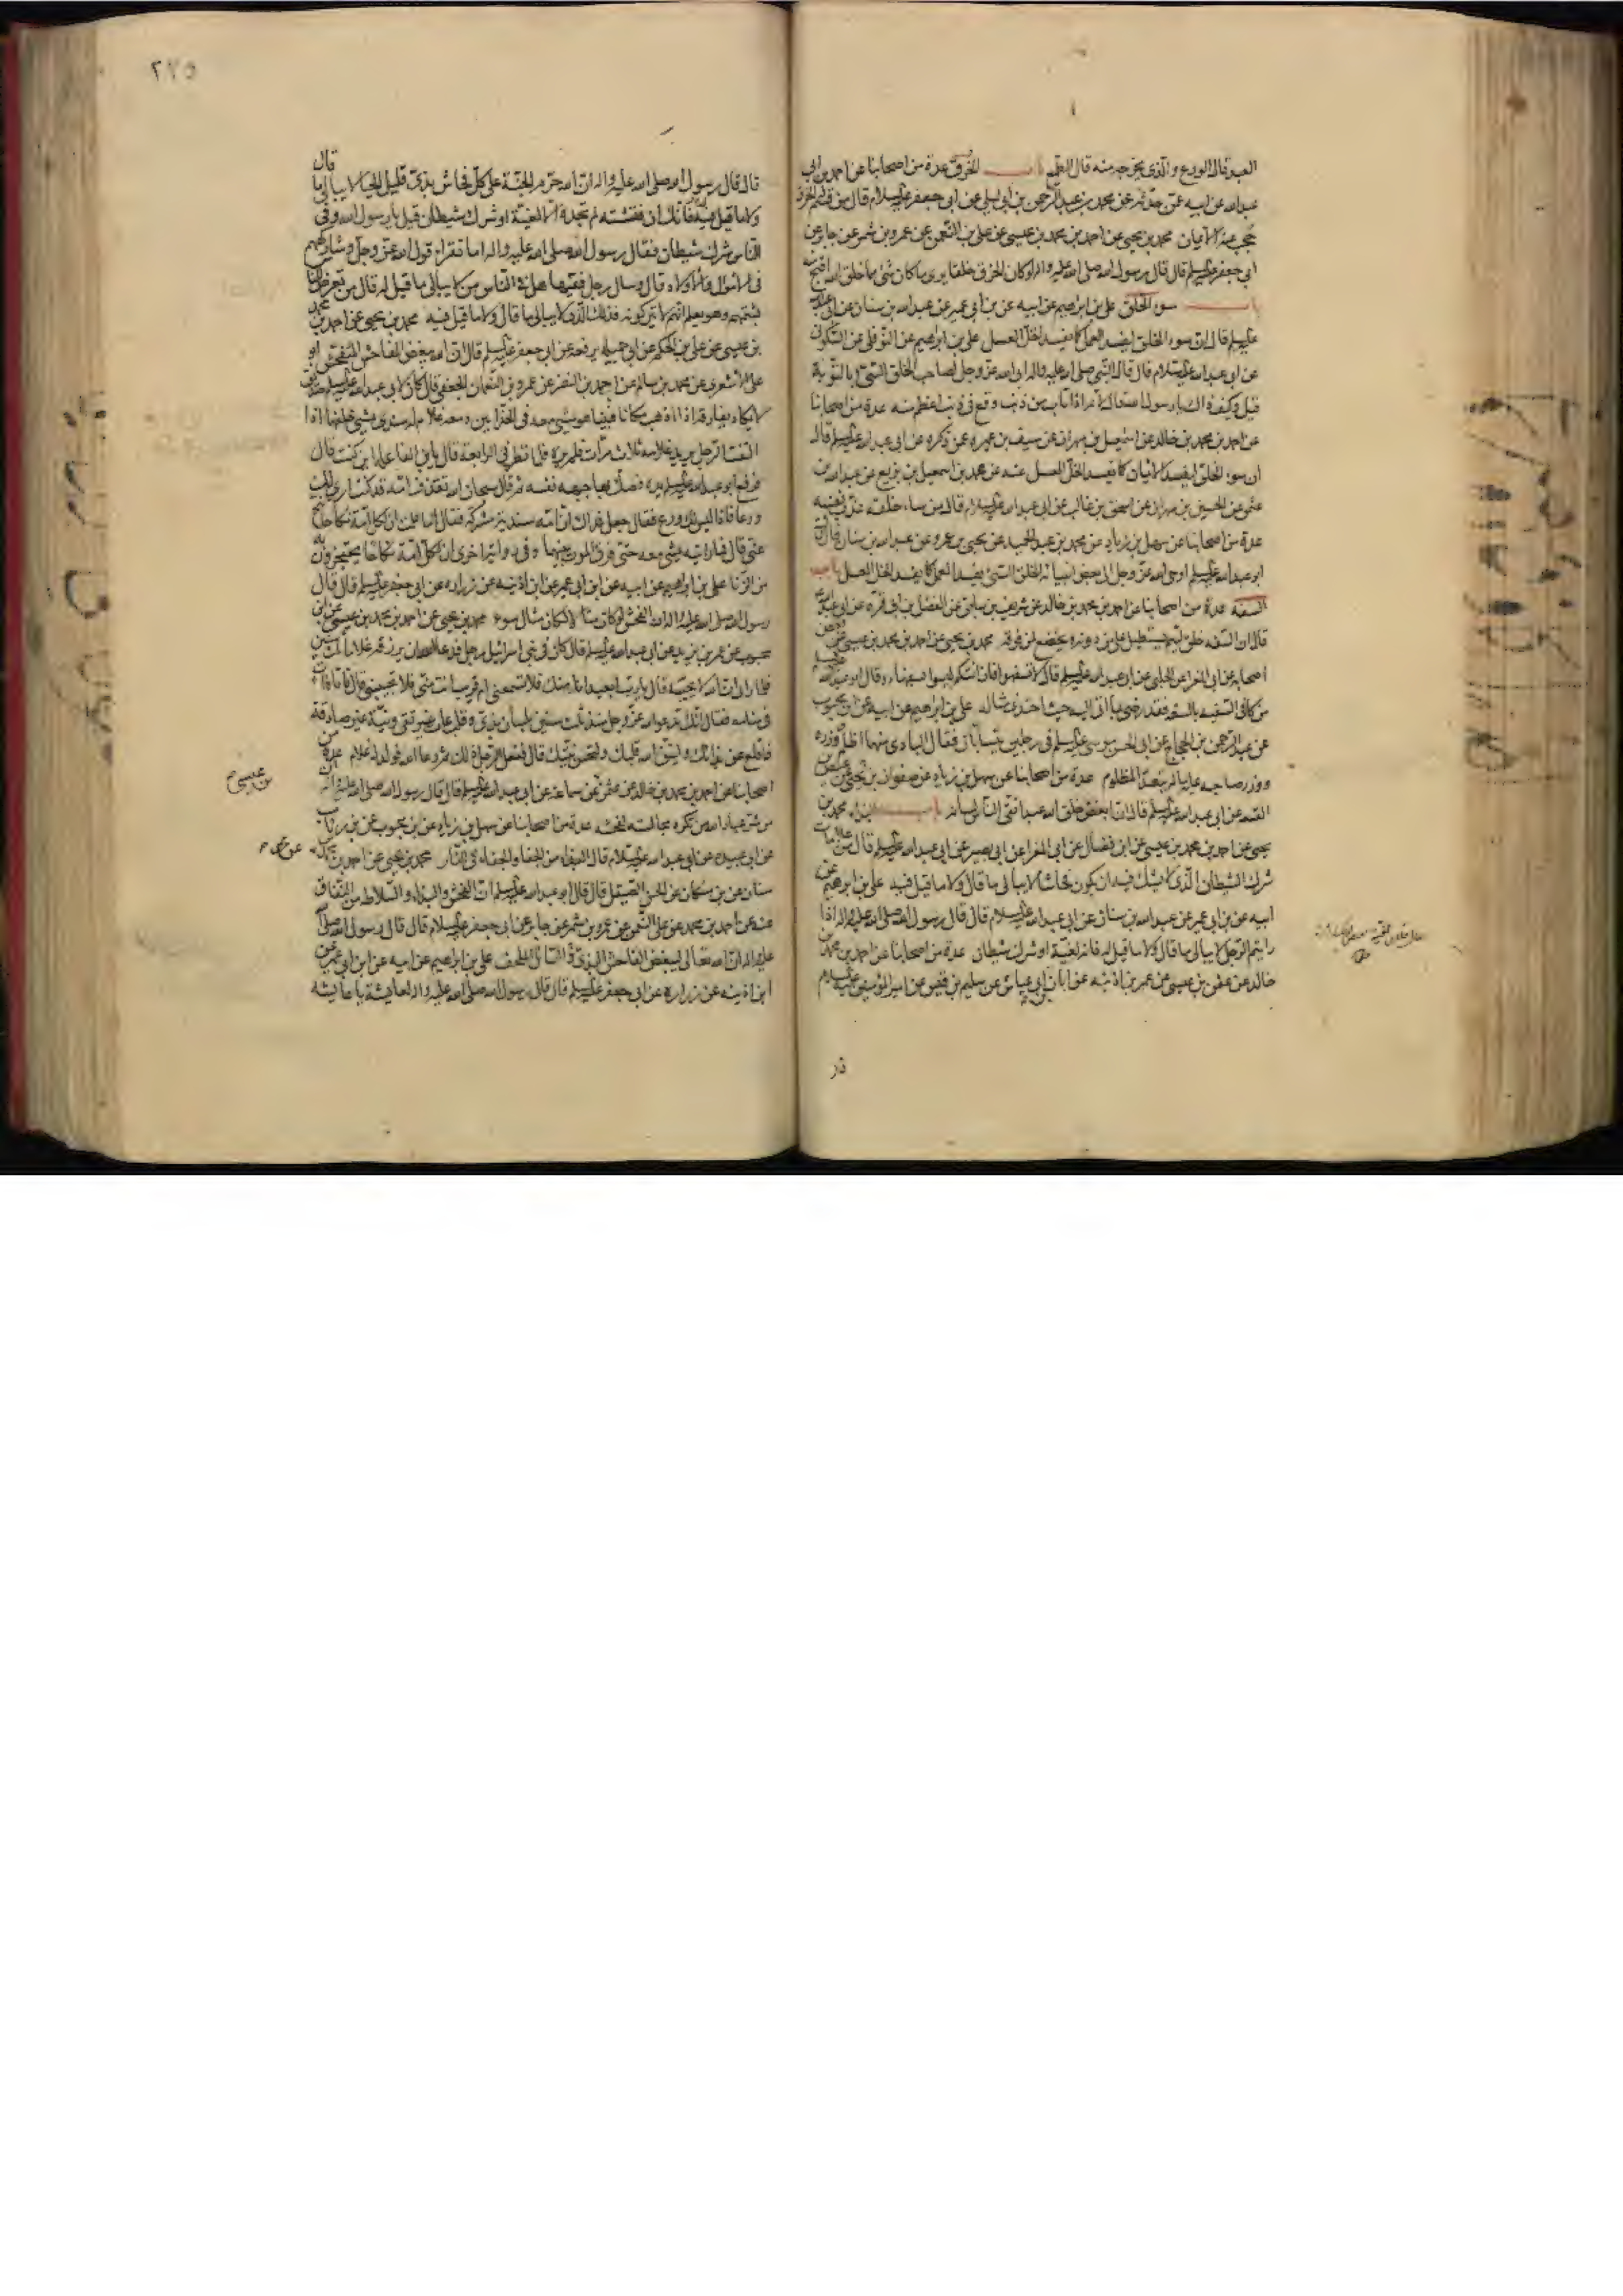 العبد قال الورع والذي يخرجه منه قال الطمع باب الخرق عدة من اصحابنا عن احمد بن ابي
عبدالله عن ابيه عمن حدثه عن محمد بن عبد الرحمن بن ابي ليلى عن ابي جعفر عليه السلام قال من قسم له الخرق
حجب عنه الايمان محمد بن يحيى عن احمد بن محمد بن عيسى عن علي بن النعمن عن عمرو بن شمر عن جابر عن
ابي جعفر عليه السلم قال قال رسول الله صلى الله عليه واله لو كان الخرق خلقا يرى ما كان شئ مما خلق الله اقبح منه
باب سوء الخلق علي بن ابرهيم عن ابيه عن بن ابي عمير عن عبدالله بن سنان عن ابي عبدالله
عليه السلم قال ان سوء الخلق ليفسد العمل كما يفسد الخل العسل علي بن ابرهيم عن ابيه عن النوفلي عن السكوني
عن ابي عبدالله عليه السلام قال قال النبي صلى الله عليه واله ابى الله عز وجل لصاحب الخلق السئ بالتوبة
قيل وكيف ذاك يا رسول الله قال لانه اذا تاب من ذنب وقع في ذنب اعظم منه عدة من اصحابنا
عن احمد بن محمد بن خالد عن اسمعيل بن مهران عن سيف بن عميرة عمن ذكره عن ابي عبدالله عليه السلم قال
ان سوء الخلق ليفسد الايمان كما يفسد الخل العسل عنه عن محمد بن اسمعيل بن بزيع عن عبدالله بن
عثمن عن الحسين بن مهران عن اسحق بن غالب عن ابي عبدالله عليه السلام قال من ساء خلقه عذب نفسه
عدة من اصحابنا عن سهل بن زياد عن محمد بن عبد الحميد عن يحيى بن عمرو عن عبدالله بن سنان قال قال
ابو عبدالله عليه السلم اوحى الله عز وجل الى بعض انبيائه الخلق السئ يفسد العمل كما يفسد الخل العسل باب
السفه عدة من اصحابنا عن احمد بن محمد بن خالد عن شريف بن سابق عن الفضل بن ابي قرة عن ابي عبدالله
قال ان السفه خلق لئيم يستطيل على من دونه ويخضع لمن فوقه محمد بن يحيى عن احمد بن محمد بن عيسى عن بعض
اصحابه عن ابي المغرا عن الحلبي عن ابي عبدالله عليه السلم قال لا تسفهوا فان ائمتكم ليسوا بسفهاء وقال ابو عبدالله عليه السلم
من كافى السفيه بالسفه فقد رضي بما اتى اليه حيث احتذى مثاله علي بن ابرهيم عن ابيه عن ابن محبوب
عن عبد الرحمن بن الحجاج عن ابي الحسن موسى عليه السلم في رجلين يتسابان فقال البادي منهما اظلم ووزره
ووزر صاحبه عليه ما لم يتعد المظلوم عدة من اصحابنا عن سهل بن زياد عن صفوان بن يحيى عن عيص بن
القسم عن ابي عبدالله عليه السلم قال ان ابغض خلق الله عبد اتقى الناس لسانه باب البذاء محمد بن
يحيى عن احمد بن محمد بن عيسى عن ابن فضال عن ابي المغرا عن ابي بصير عن ابي عبدالله عليه السلم قال من علامات
شرك الشيطان الذي لا يشك فيه ان يكون فحاشا لا يبالي ما قال ولا ما قيل فيه علي بن ابرهيم عن
ابيه عن بن ابي عمير عن عبدالله بن سنان عن ابي عبدالله عليه السلام قال قال رسول الله صلى الله عليه واله اذا
رايتم الرجل لا يبالي ما قال ولا ما قيل له فانه لغية او شرك شيطان عدة من اصحابنا عن احمد بن محمد بن
خالد عن عثمن بن عيسى عن عمر بن اذينه عن ابان بن ابي عياش عن سليم بن قيس عن امير المؤمنين عليه السلام
٢٧٥
قال قال رسول الله صلى الله عليه واله ان الله حرم الجنة على كل فحاش بذئ قليل الحياء لا يبالي ما قال
ولا ما قيل فيه فانك ان فتشته لم تجده الا لغية او شرك شيطان قيل يا رسول الله وفي
الناس شرك شيطان فقال رسول الله صلى الله عليه واله اما تقرا قول الله عز وجل وشاركهم
في الاموال والاولاد قال وسال رجل فقيها هل في الناس من لا يبالي ما قيل له قال من تعرض للناس
يشتمهم وهو يعلم انهم لا يتركونه فذلك الذي لا يبالي ما قال ولا ما قيل فيه محمد بن يحيى عن احمد بن محمد
بن عيسى عن علي بن الحكم عن ابي جميله يرفعه عن ابي جعفر عليه السلم قال ان الله يبغض الفاحش المتفحش ابو
علي الاشعري عن محمد بن سالم عن احمد بن النضر عن عمرو بن النعمان الجعفي قال كان لابي عبدالله عليه السلم صديق
لا يكاد يفارقه اذا ذهب مكانا فبينا هو يمشي معه في الحذائين ومعه غلام له سندي يمشي خلفهما اذا
التفت الرجل يريد غلامه ثلاث مرات فلم يره فلما نظر في الرابعة قال يابن الفاعله اين كنت قال
فرفع ابو عبدالله عليه السلم يده فصك بها جبهه نفسه ثم قال سبحان الله تقذف امه قد كنت ارى ان لك
ورعا فاذا ليس لك ورع فقال جعلت فداك ان امه سندية مشركه فقال اما علمت ان لكل امة نكاحا تنح
عني قال فما رايته يمشي معه حتى فرق الموت بينهما وفي رواية اخرى ان لكل امة نكاحا يحتجزون به
من الزنا علي بن ابراهيم عن ابيه عن ابن ابي عمير عن ابن اذينه عن زراره عن ابي جعفر عليه السلم قال قال
رسول الله صلى الله عليه واله ان الفحش لو كان مثالا لكان مثال سوء محمد بن يحيى عن احمد بن محمد بن عيسى عن ابن
محبوب عن عمر بن يزيد عن ابي عبدالله عليه السلم قال كان في بني اسرائيل رجل فدعا الله ان يرزقه غلاما ثلث سنين
فلما راى ان الله لا يجيبه قال يا رب ابعيد انا منك فلا تسمعني ام قريب انت مني فلا تجيبني قال فاتاه ات
في منامه فقال انك تدعو الله عز وجل منذ ثلث سنين بلسان بذئ وقلب عات غير تقي ونية غير صادقة
فاقلع عن بذائك وليتق الله قلبك ولتحسن نيتك قال ففعل الرجل ذلك ثم دعا الله فولد له غلام عدة من
اصحابنا عن احمد بن محمد بن خالد عن عثمن عن سماعة عن ابي عبدالله عليه السلم قال قال رسول الله صلى الله عليه واله
من شر عباد الله من تكره مجالسته لفحشه عدة من اصحابنا عن سهل بن زياد عن بن محبوب عن بن رئاب
عن ابي عبيده عن ابي عبدالله عليه السلام قال البذاء من الجفاء والجفاء في النار محمد بن يحيى عن احمد بن محمد
سنان عن بن مسكان عن الحسن الصيقل قال قال ابو عبدالله عليه السلم ان الفحش والبذاء والسلاطه من النفاق
عنه عن احمد بن محمد عن علي النعمن عن عمرو بن شمر عن جابر عن ابي جعفر عليه السلام قال قال رسول الله صلى الله
عليه واله ان الله تعالى يبغض الفاحش البذئ والسائل الملحف علي بن ابراهيم عن ابيه عن ابن ابي عمير عن
ابن اذينه عن زراره عن ابي جعفر عليه السلم قال قال رسول الله صلى الله عليه واله لعايشة يا عايشه
بن عيسى